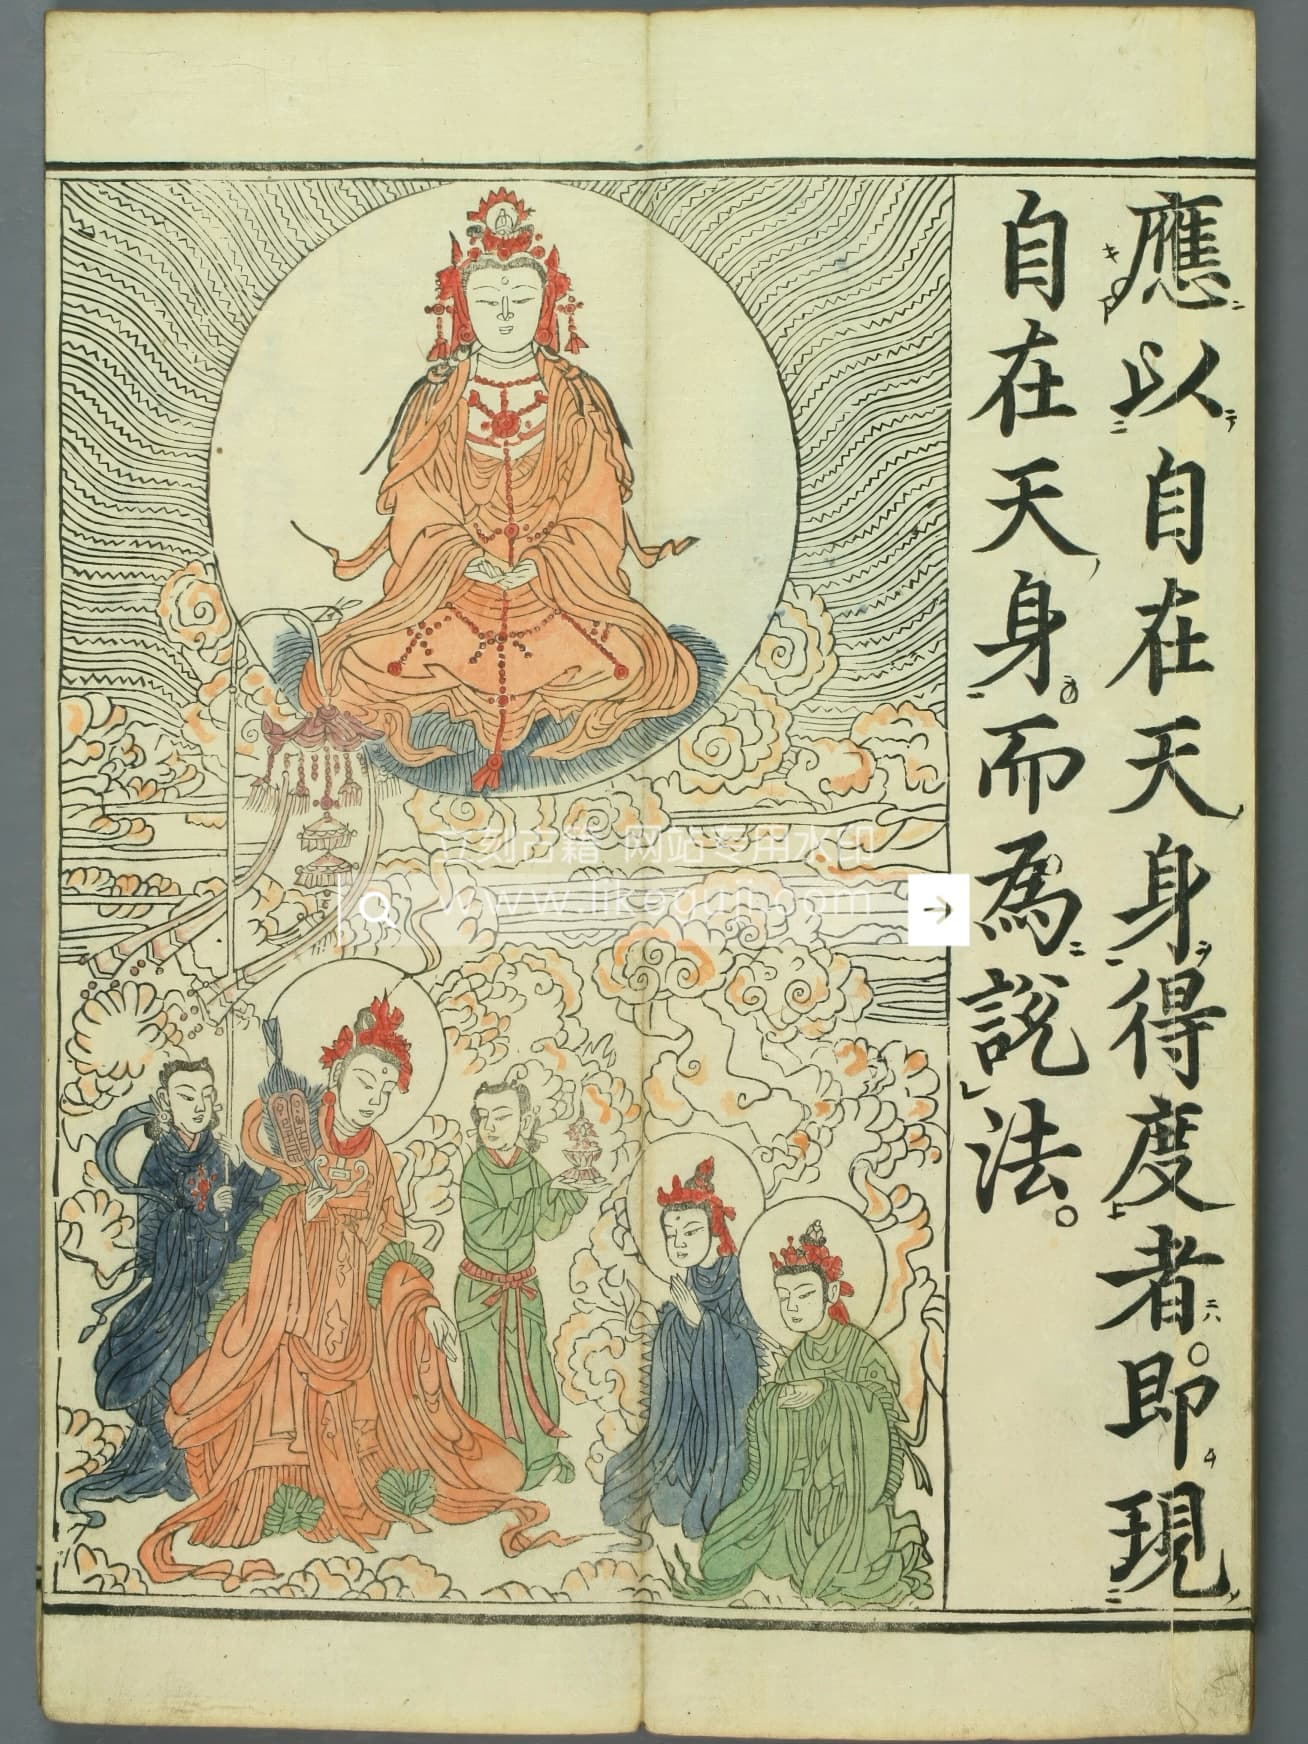 應以自在天身得度者。即現
自在天身而為說法。
立刻古籍 网站专用水印
www.likeguji.com